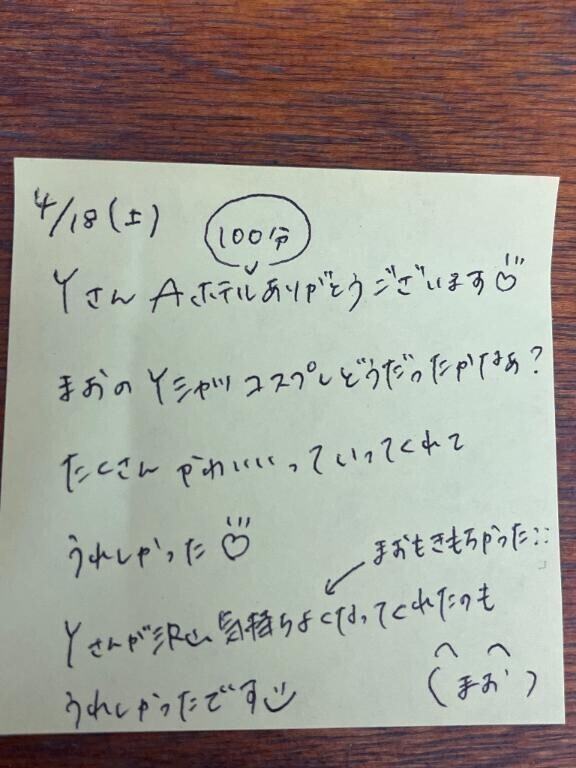 4/18(土)
100分
Yさん Aホテルありがとうございます♡
まおのYシャツコスプレどうだったかなぁ?
たくさんかわいいっていってくれて
うれしかった♡
まおもきもちかった::
Yさんが沢山気持ちよくなってくれたのも
うれしかったです
(まお)